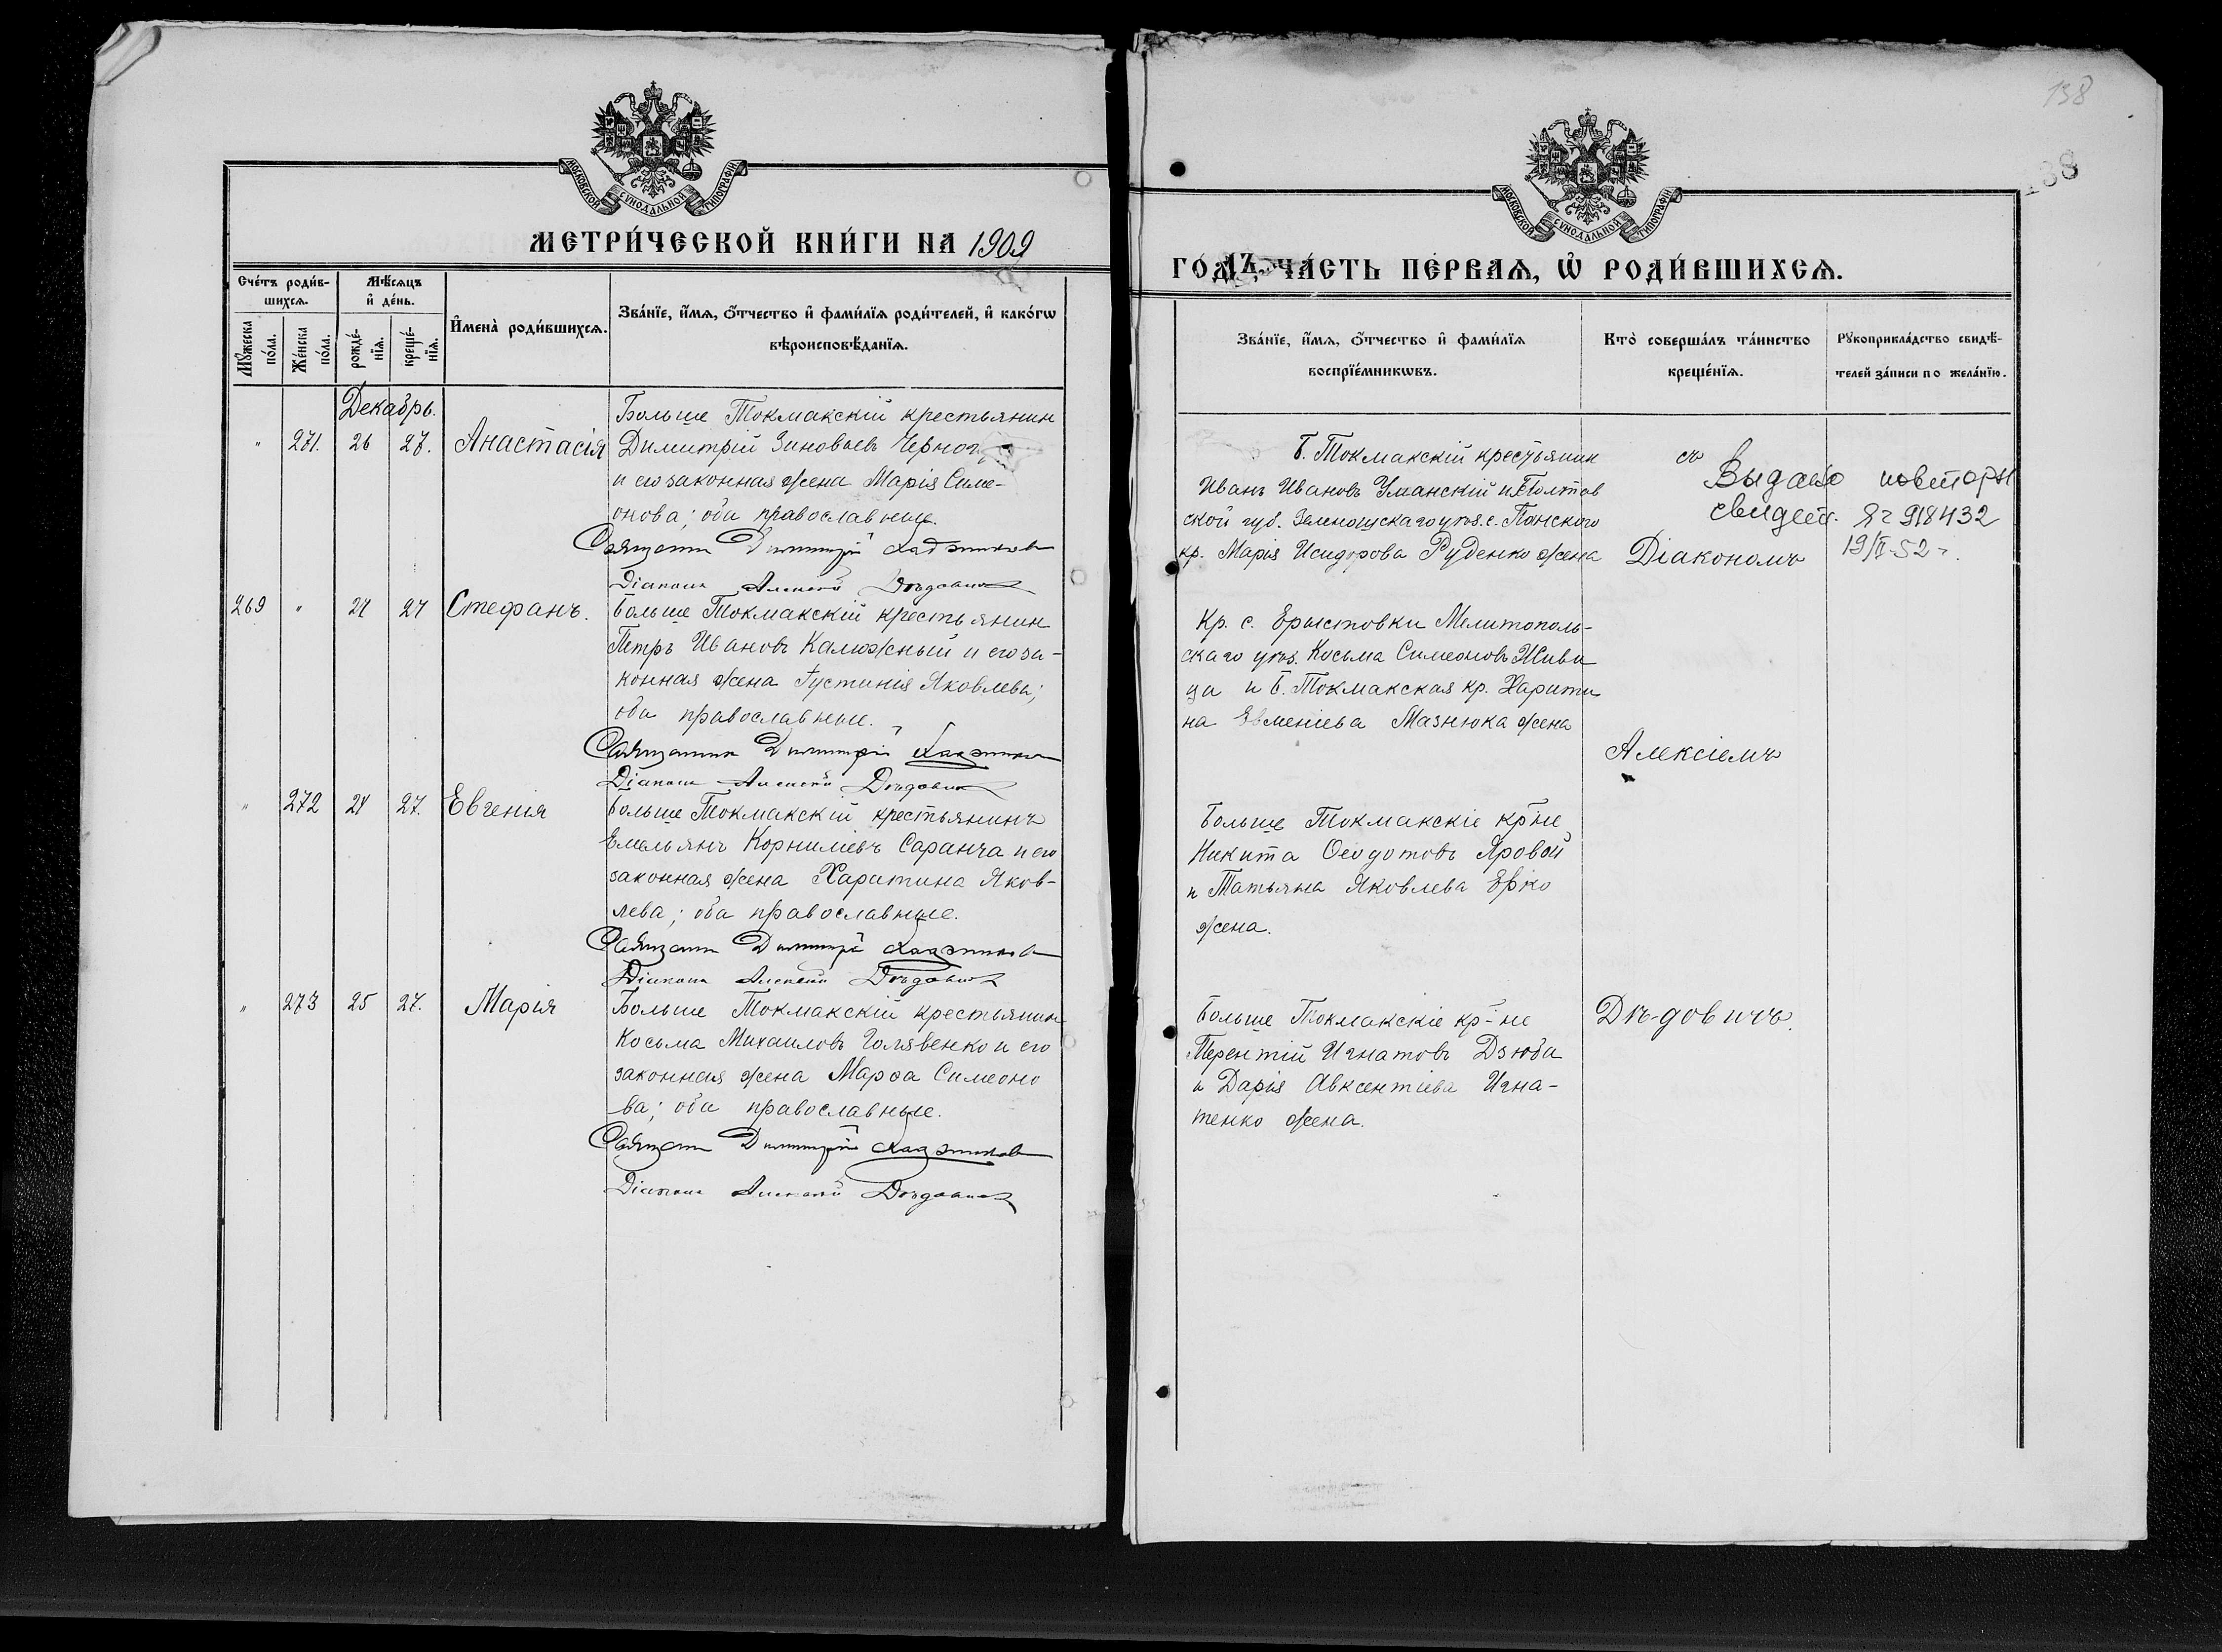 138
138
МОСКОВСКОЙ СУНОДАЛЬНОЙ ТИПОГРАФІИ
МЕТРИ́ЧЕСКОЙ КНИ́ГИ НА 1909
Сче́тъ роди́в-
шихсѧ.
Мѣ́сѧцъ
и҆ де́нь.
Мꙋ́жеска
по́ла.
Же́нска
по́ла.
рожде́-
нїѧ.
креще́-
нїѧ.
И҆мена̀ роди́вшихсѧ.
Зва́нїе, и҆́мѧ, ѻ҆́тчество и҆ фами́лїѧ роди́телей, и҆ како́гѡ
вѣроисповѣ́данїѧ.
Декабрь.
" 271. 26 27. Анастасія
Больше Токмакскій крестьянин
Димитрій Зиновьевъ
и его законная жена Марія Симе-
онова; оба православные.
Священник Димитрій
Діаконъ Алексій Дѣдовичъ
269 " 24 27 Стефанъ.
Больше Токмакскій крестьянин
Петръ Ивановъ Калюжный и его за-
конная жена Іустинія Яковлева;
оба православные.
Священник Димитрій
Діаконъ Алексій Дѣдовичъ
" 272 24 27. Евгенія
Больше Токмакскій крестьянинъ
Емельянъ Корниліевъ Саранча и его
законная жена Харитина Яков-
лева; оба православные.
Священник Димитрій
Діаконъ Алексій Дѣдовичъ
" 273 25 27. Марія
Больше Токмакскій крестьянин
Косьма Михаиловъ Голявенко и его
законная жена Марѳа Симеоно
ва; оба православные.
Священник Димитрій
Діаконъ Алексій Дѣдовичъ
МОСКОВСКОЙ СУНОДАЛЬНОЙ ТИПОГРАФІИ
ГО́ДЪ, ЧА́СТЬ ПЕ́РВАѦ, Ѡ҆ РОДИ́ВШИХСѦ.
Зва́нїе, и҆́мѧ, ѻ҆́тчество и҆ фами́лїѧ
воспрїе́мникѡвъ.
Кто̀ соверша́лъ та́инство
креще́нїѧ.
Рꙋкоприкла́дство свидѣ́-
телей за́писи по жела́нїю.
Б. Токмакскій крестьянин
Иванъ Ивановъ Уманскій и Полтав
ской губ. уѣз. с. Панского
кр. Марія Исидорова Руденко жена
Діакономъ
Выдано повторн
свидет. ЯГ 918432
19/II-52 г.
Кр. с. Ерыстовки Мелитополь-
скаго уѣз. Косьма Симеоновъ Живи
ца и Б. Токмакская кр. Харити
на Евменіева Мазнюка жена
Алексіемъ
Больше Токмакскіе кр-не
Никита Ѳеодотовъ Яровой
и Татьяна Яковлева
жена.
Больше Токмакскіе кр-не
Терентій Игнатовъ Дзюба
и Дарія Авксентіева Игна-
тенко жена.
Дѣдовичъ.